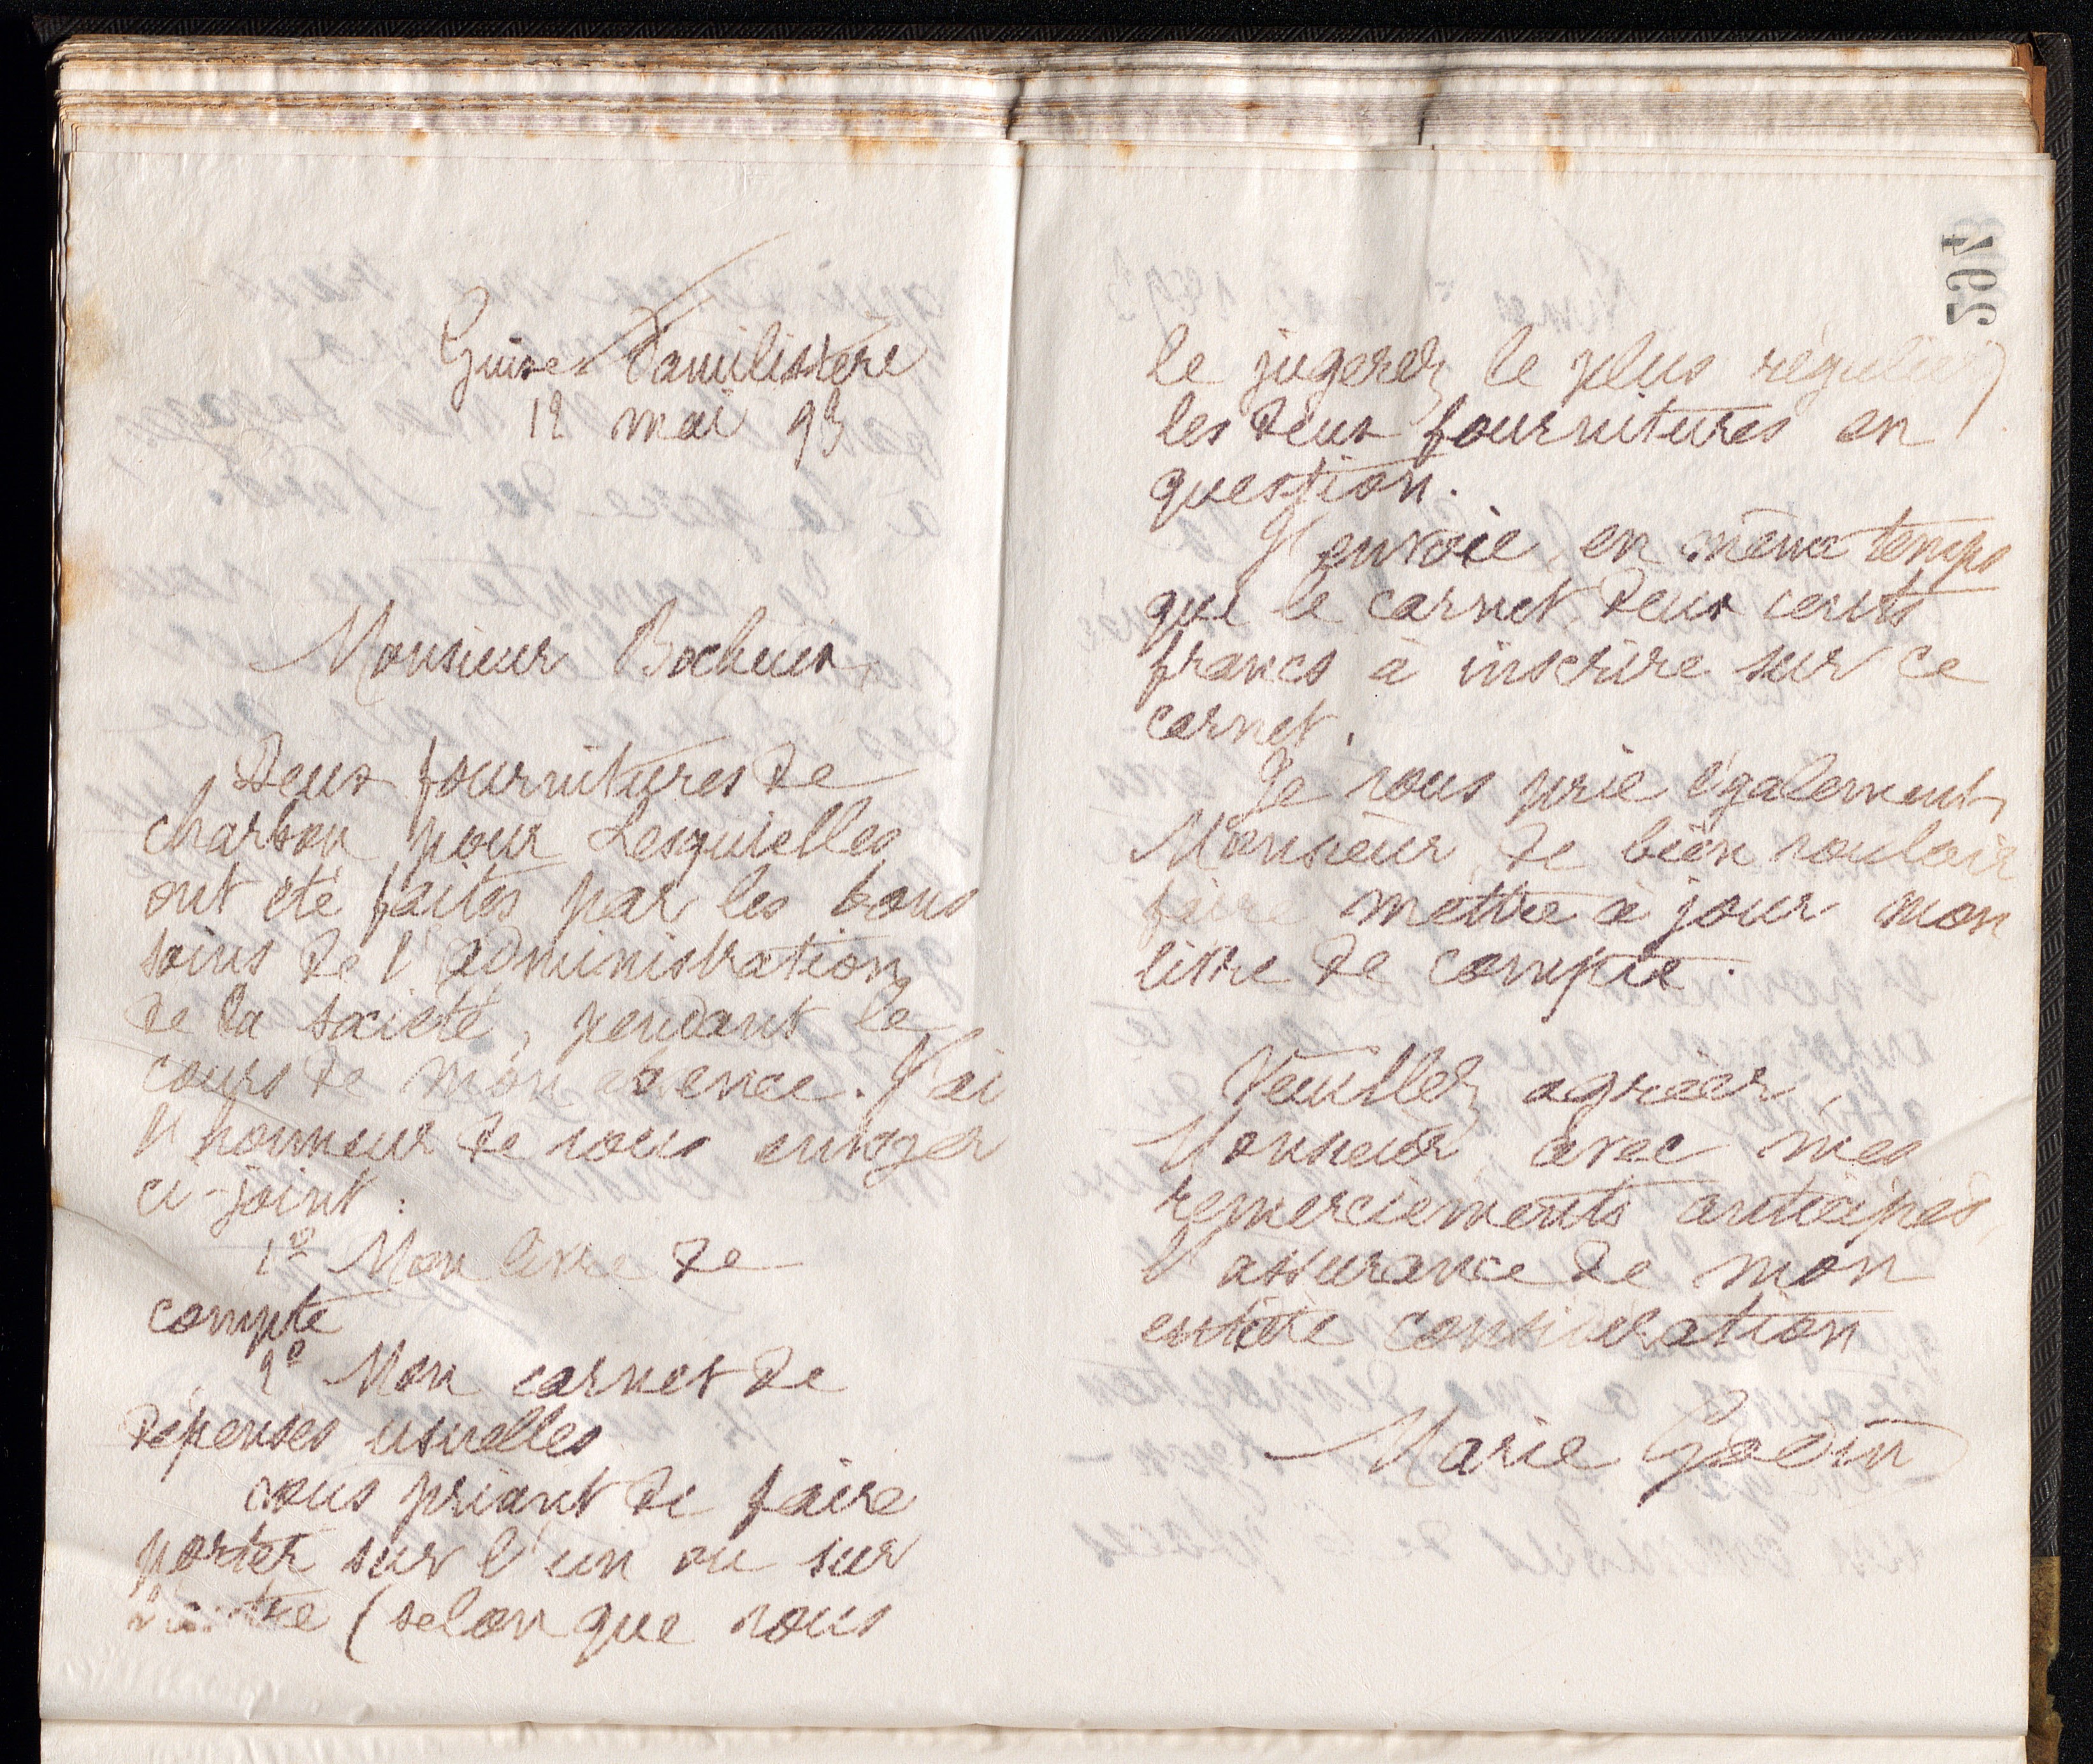 Guise Familistère
12 mai 93
Monsieur Bocheux,
Deux fournitures de
charbon pour Lesquielles
ont été faites par les bons
soins de l'administration
de la société, pendant le
cours de mon absence. J'ai
l'honneur de vous envoyer
ci-joint :
1º Mon livre de
compte
2º Mon carnet de
dépenses usuelles
vous priant de faire
porter sur l'un ou sur
l'autre (selon que vous
465
le jugerez le plus régulier)
les deux fournitures en
question.
J'envoie en même temps
que le carnet deux cents
francs à inscrire sur ce
carnet.
Je vous prie également,
Monsieur, de bien vouloir
faire mettre à jour mon
livre de compte.
Veuillez agréer,
Monsieur, avec mes
remerciements anticipés,
l'assurance de mon
entière considération
Marie Godin